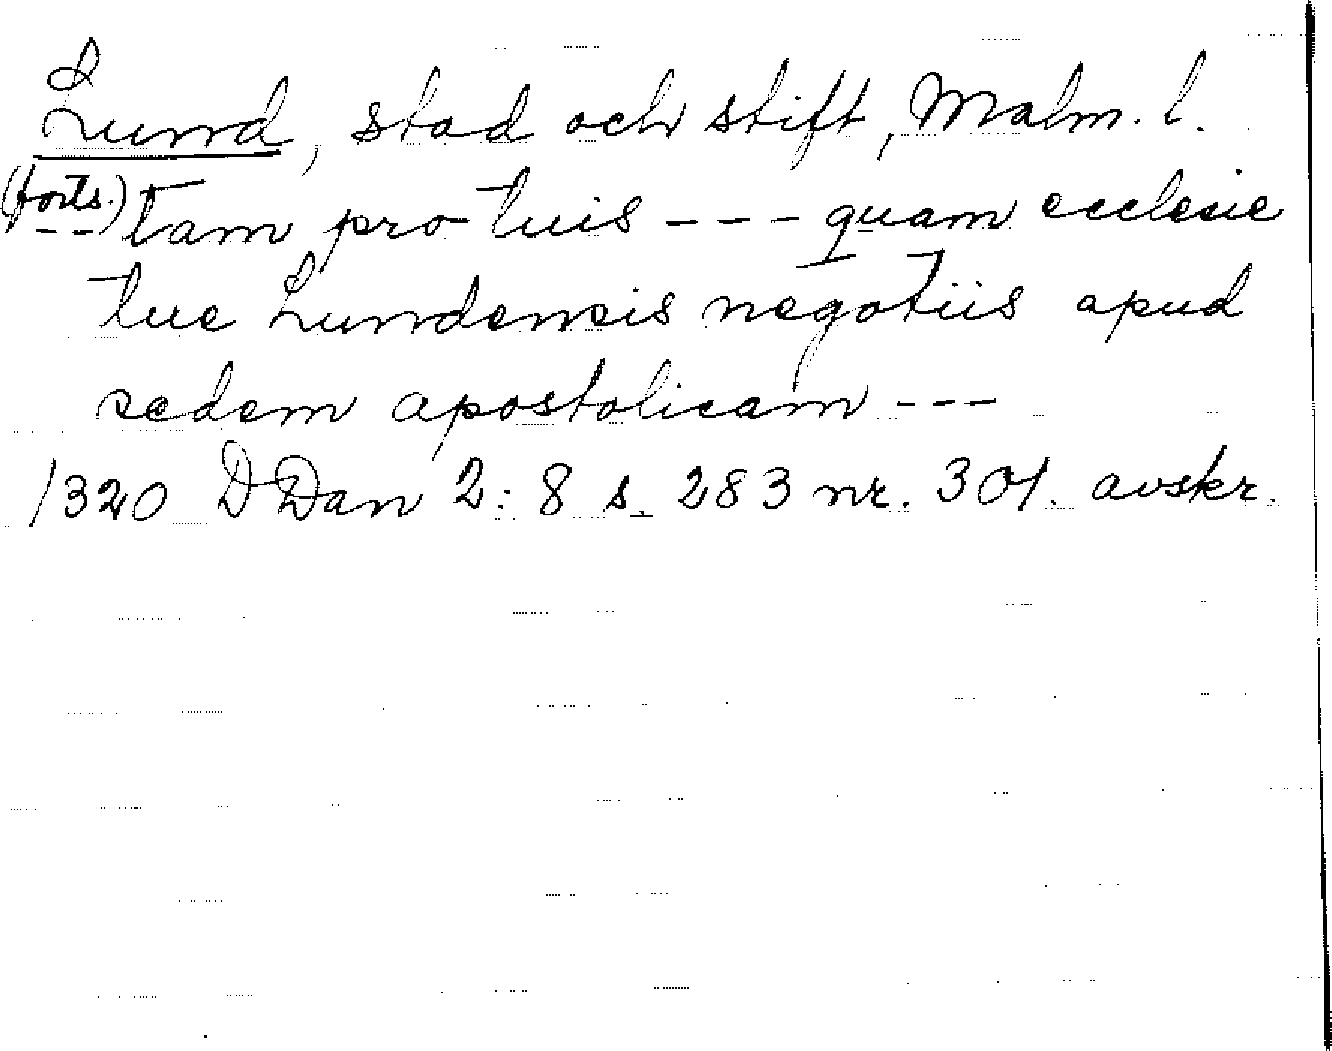 Lund, stad och stift, Malm. l.
(forts.) -- tam pro tuis --- quam ecclesie
tue Lundensis negotiis apud
sedem apostolicam ---
1320 DDan 2:8 s. 283 nr. 301. avskr.